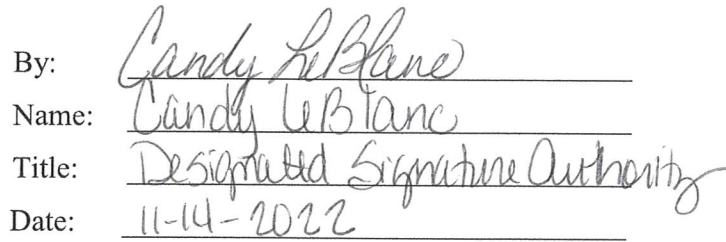 By: Candy LeBlanc
Name: Candy LeBlanc
Title: Designated Signature Authority
Date: 11-14-2022